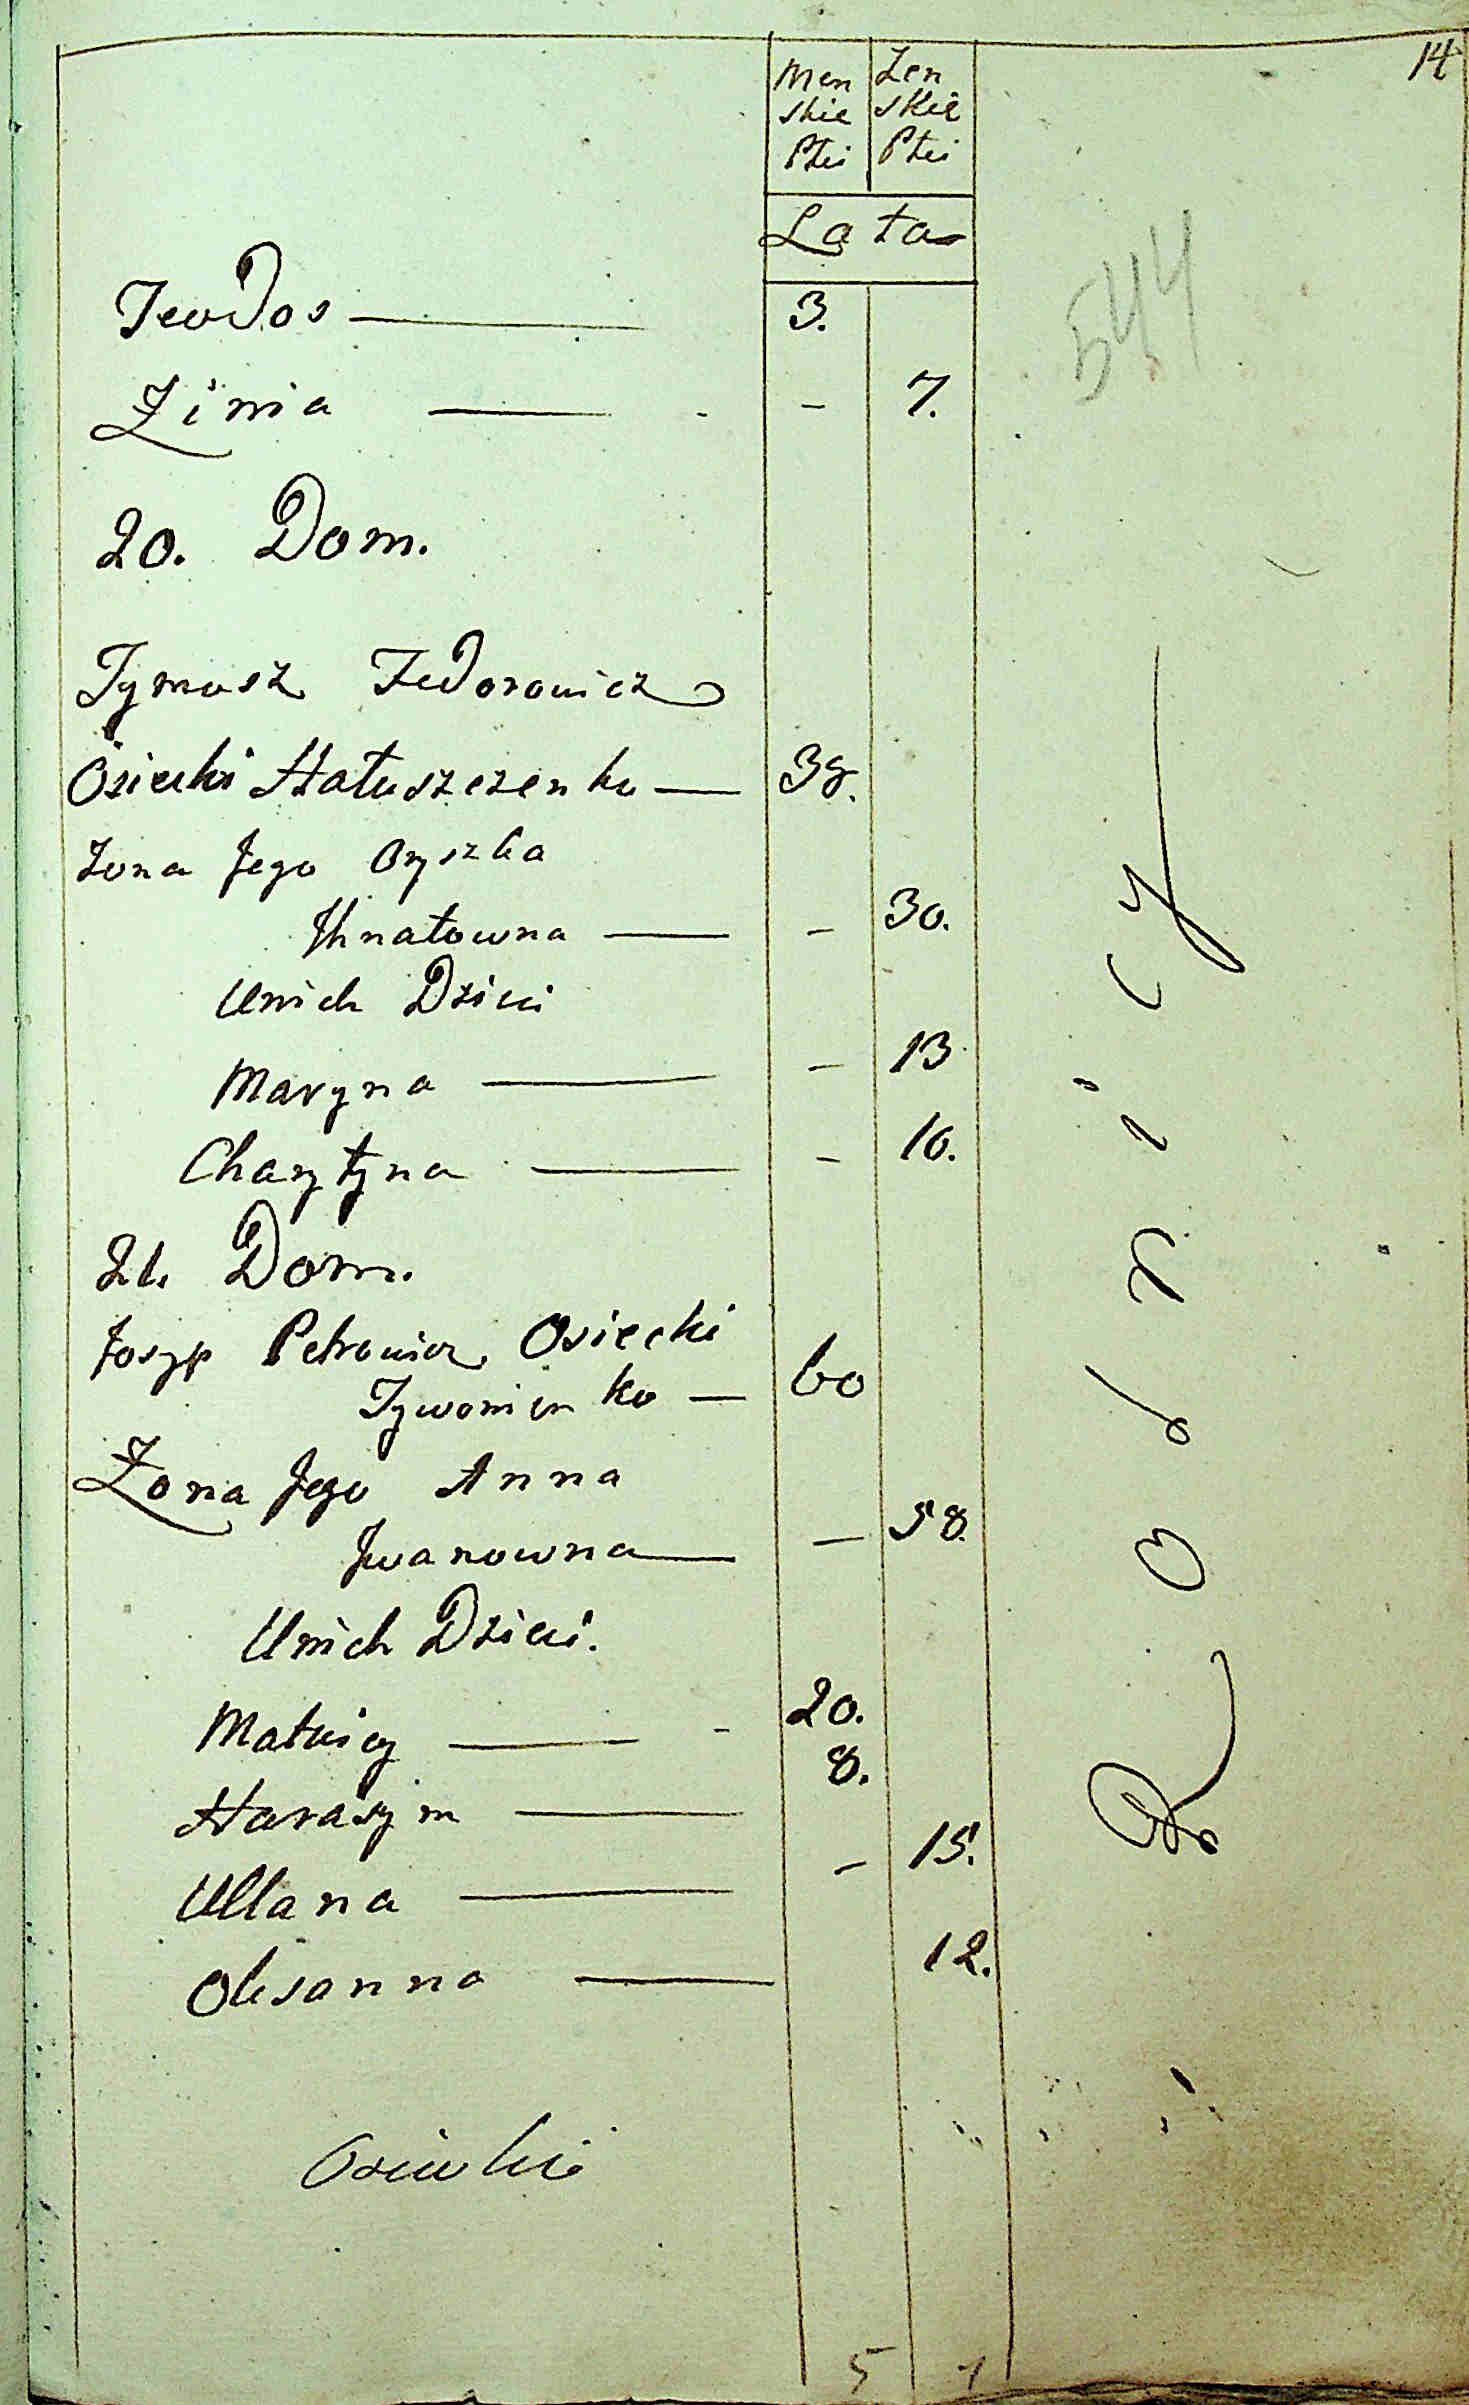 14
Men Zen
skie skie
Płci Płci
Lata
544
Teodos — 3.
Zinia — - 7.
20. Dom.
Tymosz Fedorowicz
Osiecki Hałuszczenko — 38.
Zona Jego Oryszka
Ihnatowna — - 30.
Unich Dzieci
Maryna — - 13
Charytyna — - 10.
21. Dom.
Josyp Petrowicz Osiecki
Tywonienko — 60
Zona Jego Anna
Jwanowna — - 58.
Unich Dzieci.
Matwiey — 20.
Harasym — 8.
Ullana — - 15.
Olesanna — 12.
Osiecki
5 7